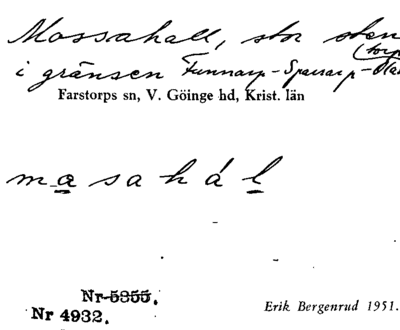 Mossahall, stor sten
i gränsen Funnarp-Sparrarp-
Farstorps sn, V. Göinge hd, Krist. län
m a s a h á l
Nr 5355.
Nr 4932.
Erik Bergenrud 1951.